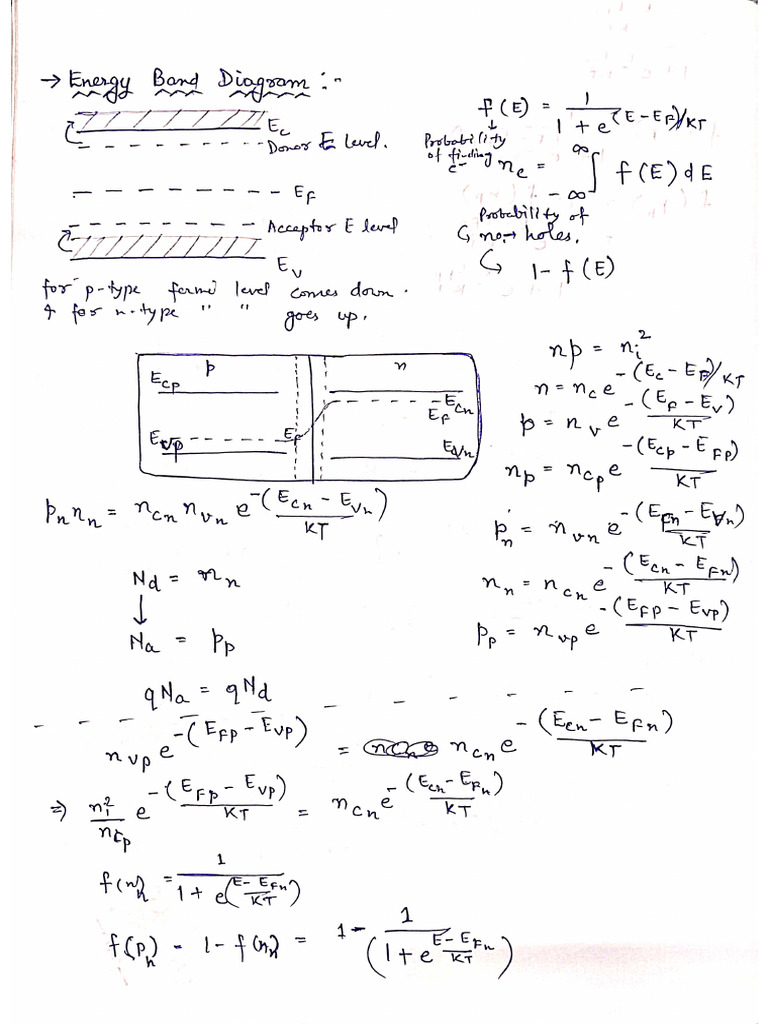 → Energy Band Diagram :-
E_c
Donor E level.
E_F
Acceptor E level
E_v
for p-type fermi level comes down.
& for n-type " " goes up.
f(E) = 1 / 1 + e^(E-E_F)/KT
Probability of finding e-
n_e = ∫_{-∞}^{∞} f(E) dE
Probability of
no. → holes.
↳ 1 - f(E)
p n
E_cp
E_vp E_f
E_cn
E_f
E_vn
np = n_i^2
n = n_c e^-(E_c - E_F)/KT
p = n_v e^-(E_f - E_v)/KT
n_p = n_cp e^-(E_cp - E_Fp)/KT
p_n = n_vn e^-(E_Fn - E_vn)/KT
n_n = n_cn e^-(E_cn - E_Fn)/KT
p_p = n_vp e^-(E_Fp - E_vp)/KT
p_n n_n = n_cn n_vn e^-(E_cn - E_vn)/KT
N_d = n_n
↓
N_a = p_p
qN_a = qN_d
n_vp e^-(E_Fp - E_vp) = n_cn e^-(E_cn - E_Fn)/KT
⇒ n_i^2/n_cp e^-(E_Fp - E_vp)/KT = n_cn e^-(E_cn - E_Fn)/KT
f(n)_n = 1 / 1 + e^(E - E_Fn / KT)
f(p)_n - 1 - f(n)_n = 1 - 1 / (1 + e^(E - E_Fn)/KT)